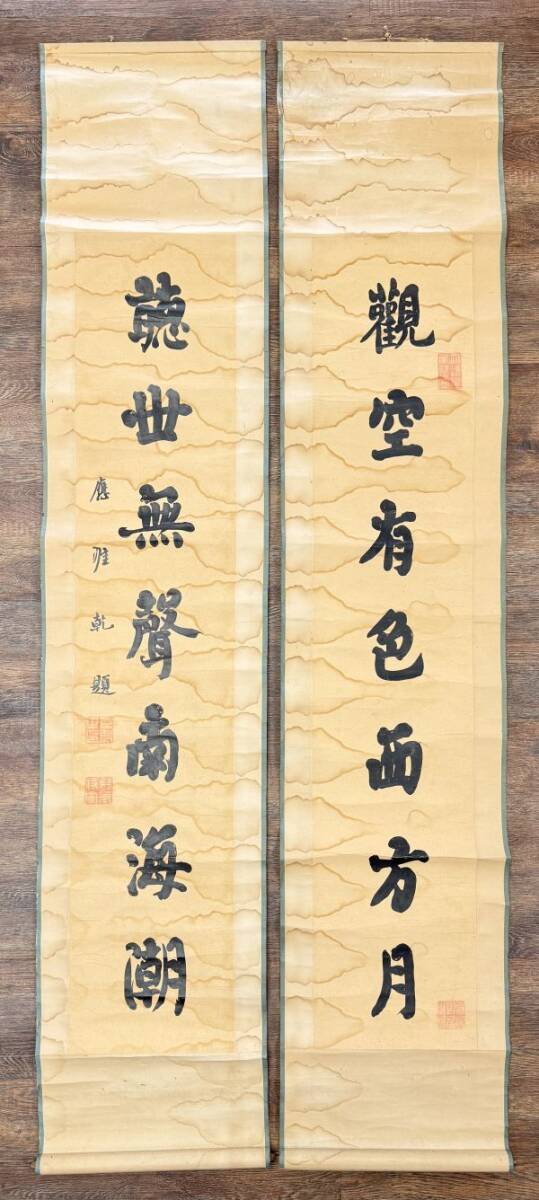 觀空有色西方月
聽世無聲南海潮
應隹乾題